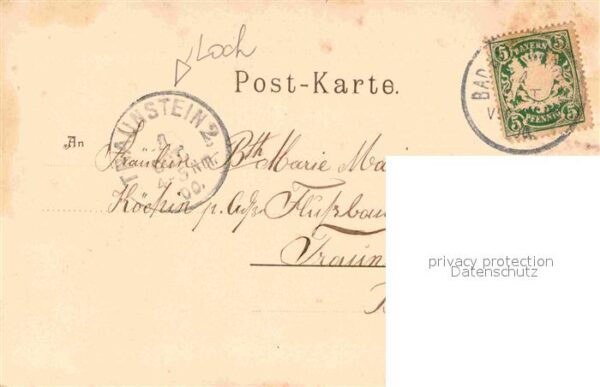 Loch
Post-Karte.
5 BAYERN 5
5 PFENNIG 5
BAD
TRAUNSTEIN 2.
00.
An Fräulein Bth Marie Mai
Köchin p. Adr. Flußbau
Traun
privacy protection
Datenschutz